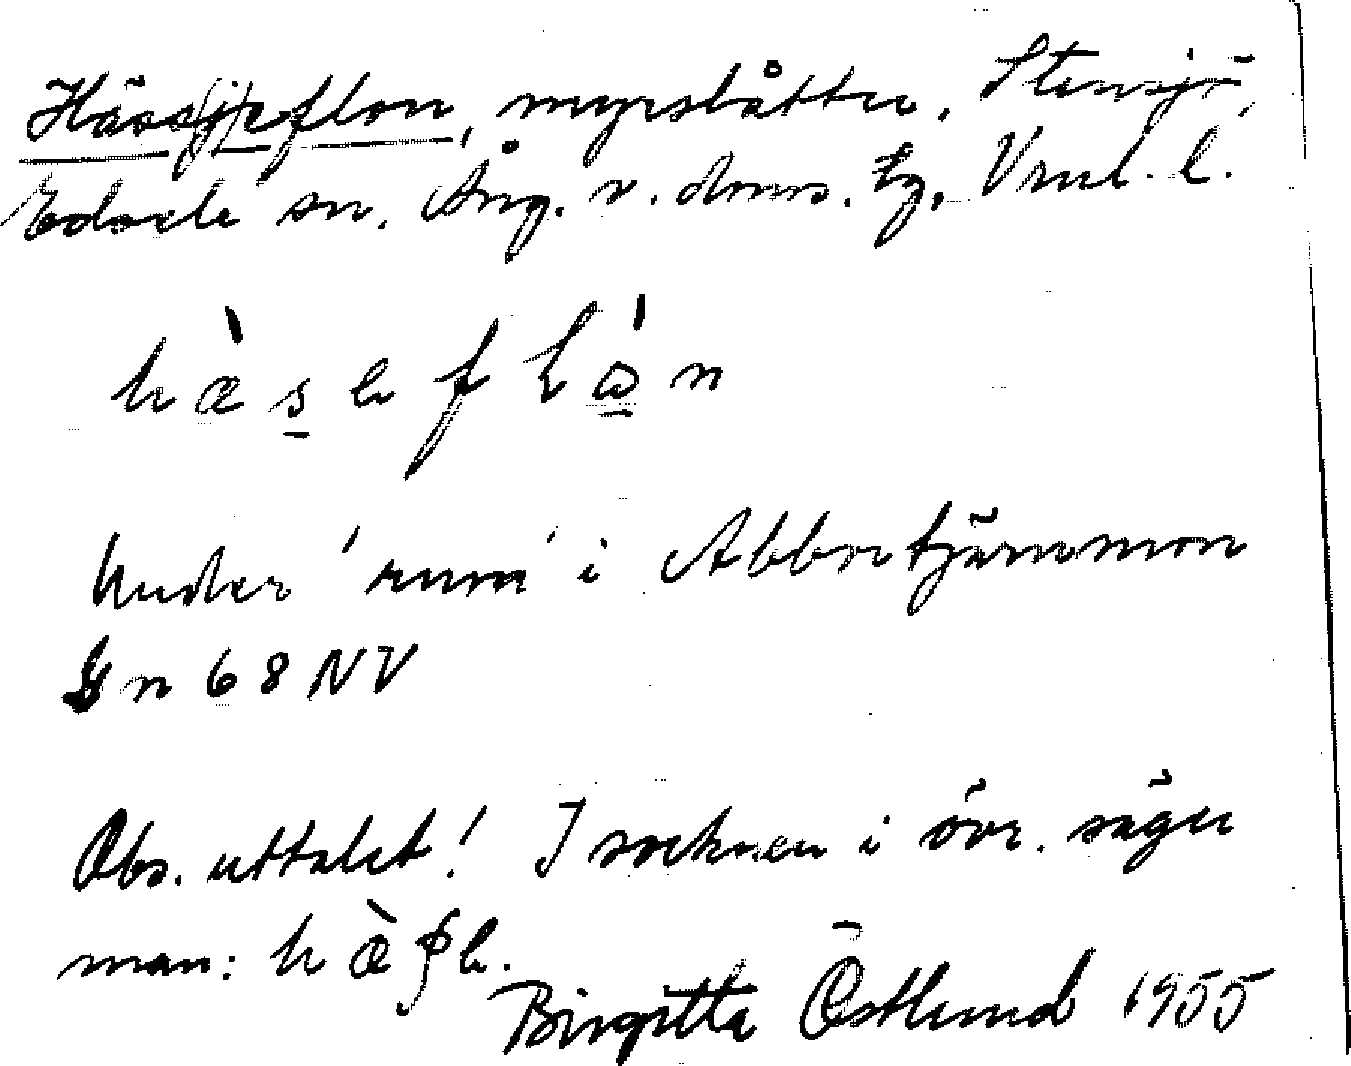 Hässjeflon, myrslåtter, Stensjö,
Edsele sn. Ång. v. doms. tg, Vnl. l.
hæ̀seflón
Under 'rum' i Abbortjärnmon
Gn 68 NV
Obs. uttalet! I socknen i övr. säger
man: hæ̀ʃe.
Birgitta Östlund 1955